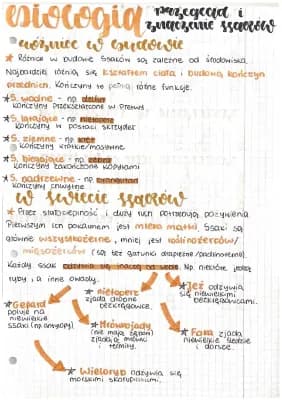 Biologia przegląd i
znaczenie ssaków
różnice w budowie
* Różnice w budowie ssaków są zależne od środowiska.
Najbardziej różnią się kształtem ciała i budową kończyn
przednich. Kończyny te pełnią różne funkcje.
* S. wodne - np. delfin
kończyny przekształcone w płetwy.
* S. latające - np. nietoperz
kończyny w postaci skrzydeł
* S. ziemne - np. kret
kończyny krótkie/masywne
* S. biegające - np. zebra
kończyny zakończone kopytami
* S. nadrzewne - np. orangutan
kończyny chwytne
w świecie ssaków
* Przez stałocieplność i duży ruch potrzebują pożywienia.
Pierwszym ich pokarmem jest mleko matki. Ssaki są
głównie wszystkożerne, mniej jest roślinożerców/
mięsożerców (są też gatunki drapieżne/padlinożerne).
Każdy ssak odżywia się inaczej od siebie. Np. niektóre jedzą
ryby, a inne owady.
* Gepard
poluje na
niewielkie
ssaki (np. antylopy).
* Nietoperz
zjada drobne
bezkręgowce.
* Jeż odżywia
się niewielkimi
bezkręgowcami.
* Mrówkojady
(nie mają zębów)
zjadają mrówki
i termity.
* Foka zjada
niewielkie śledzie
i dorsze.
* Wieloryb odżywia się
morskimi skorupiakami.